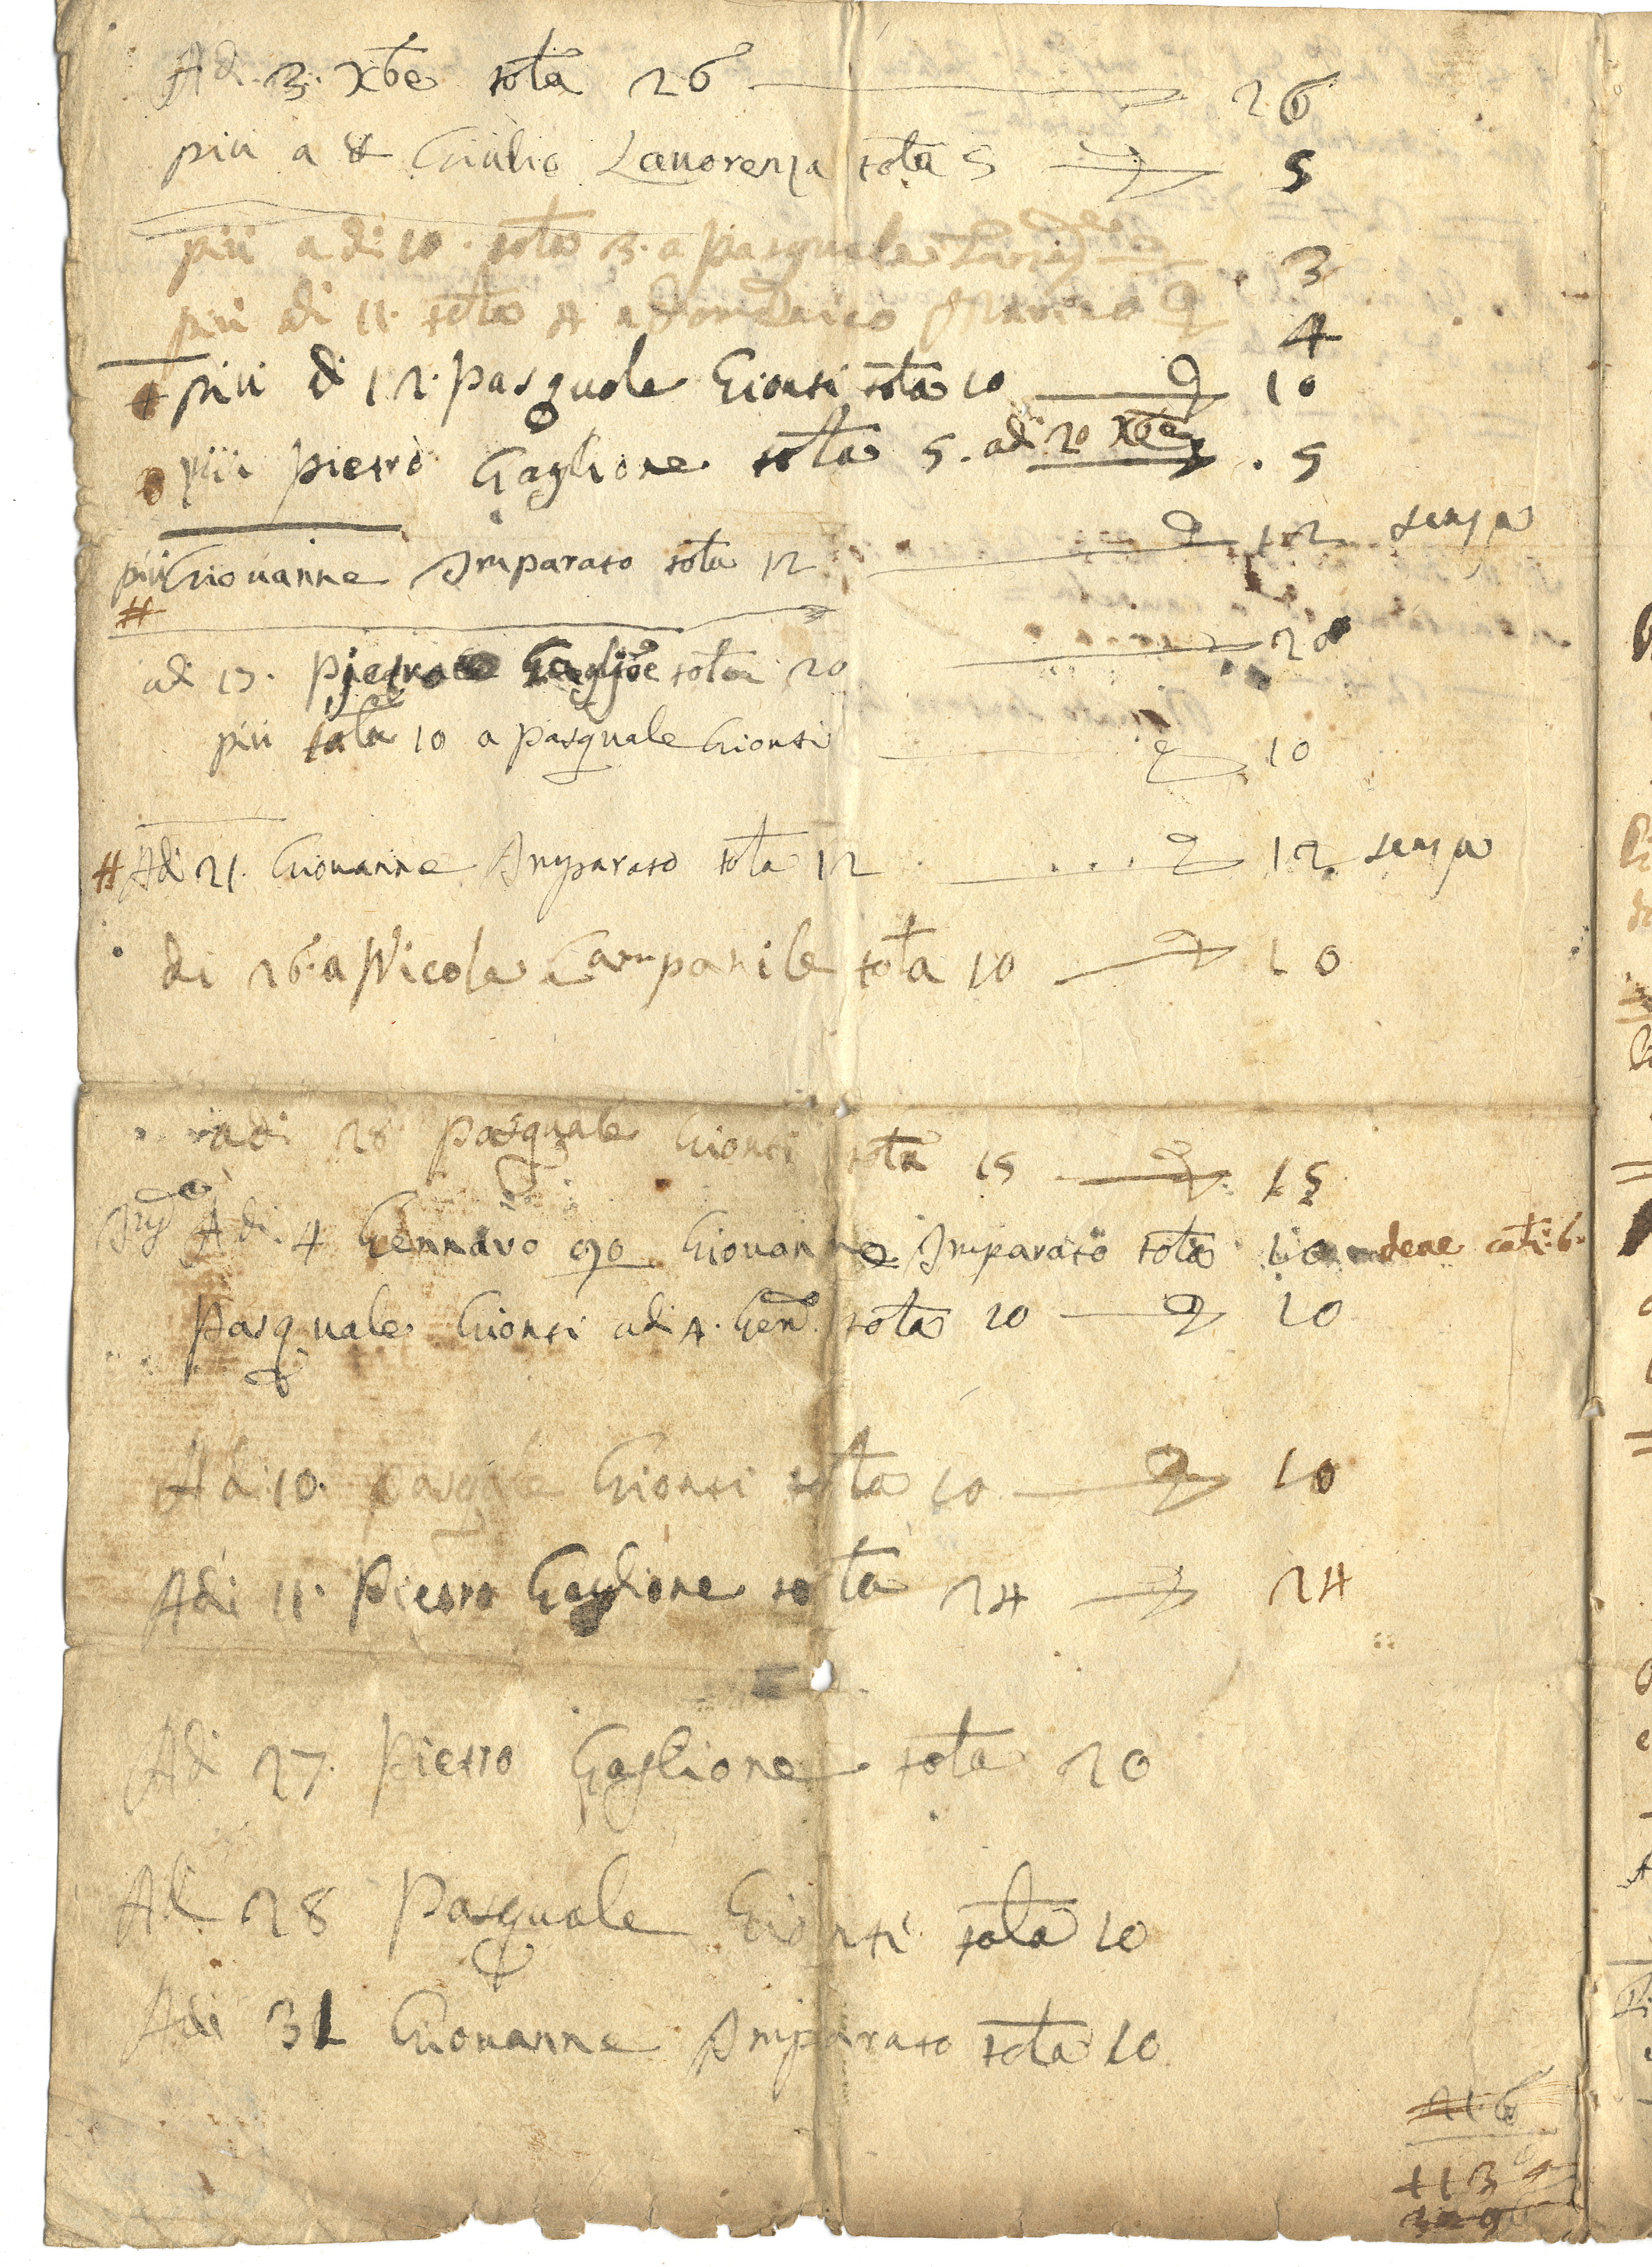 Adi 3. Xbe rotla 26 26
piu a 8 Giulio Lauorenza rotla 5 5
piu a di 10. rotla 3. a pasquale 3
piu di 11. rotla 4 a Marino 4
piu di 12. pasquale Gionti rotla 10 10
piu pietro Gaglione rotla 5. adi 20 Xbe 5
piu Giouanne Imparato rotla 12 12
adi 13. pietro Gaglioe rotla 20 20
piu rotla 10 a pasquale Gionti 10
Adi 21. Giouanne Imparato rotla 12 12
di 26. a Nicola Campanile rotla 10 10
adi 28 pasquale Gionti rotla 15 15
Adi 4 Gennaro 90 Giouanne Imparato rotla 10 deue
Pasquale Gionti adi 4. Genro rotla 20 20
Adi 10. pasqale Gionti rotla 10 10
Adi 11. Pietro Gaglione rotla 24 24
Adi 27. Pietro Gaglione rotla 20
Al 28 Pasquale Gionti rotla 10
Adi 31 Giouanne Imparato rotla 10
216
113